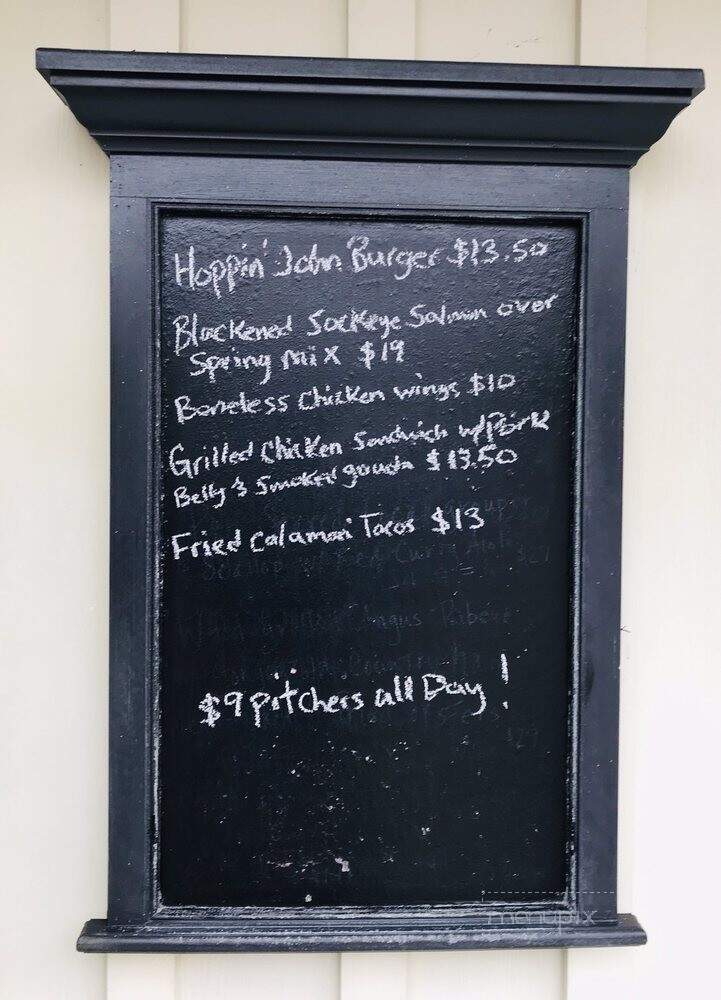 Hoppin' John Burger $13.50
Blackened Sockeye Salmon over
Spring mix $19
Boneless Chicken wings $10
Grilled Chicken Sandwich w/Pork
Belly & Smoked gouda $13.50
Fried Calamari Tacos $13
Angus Ribeye
$9 pitchers all Day!
menupix